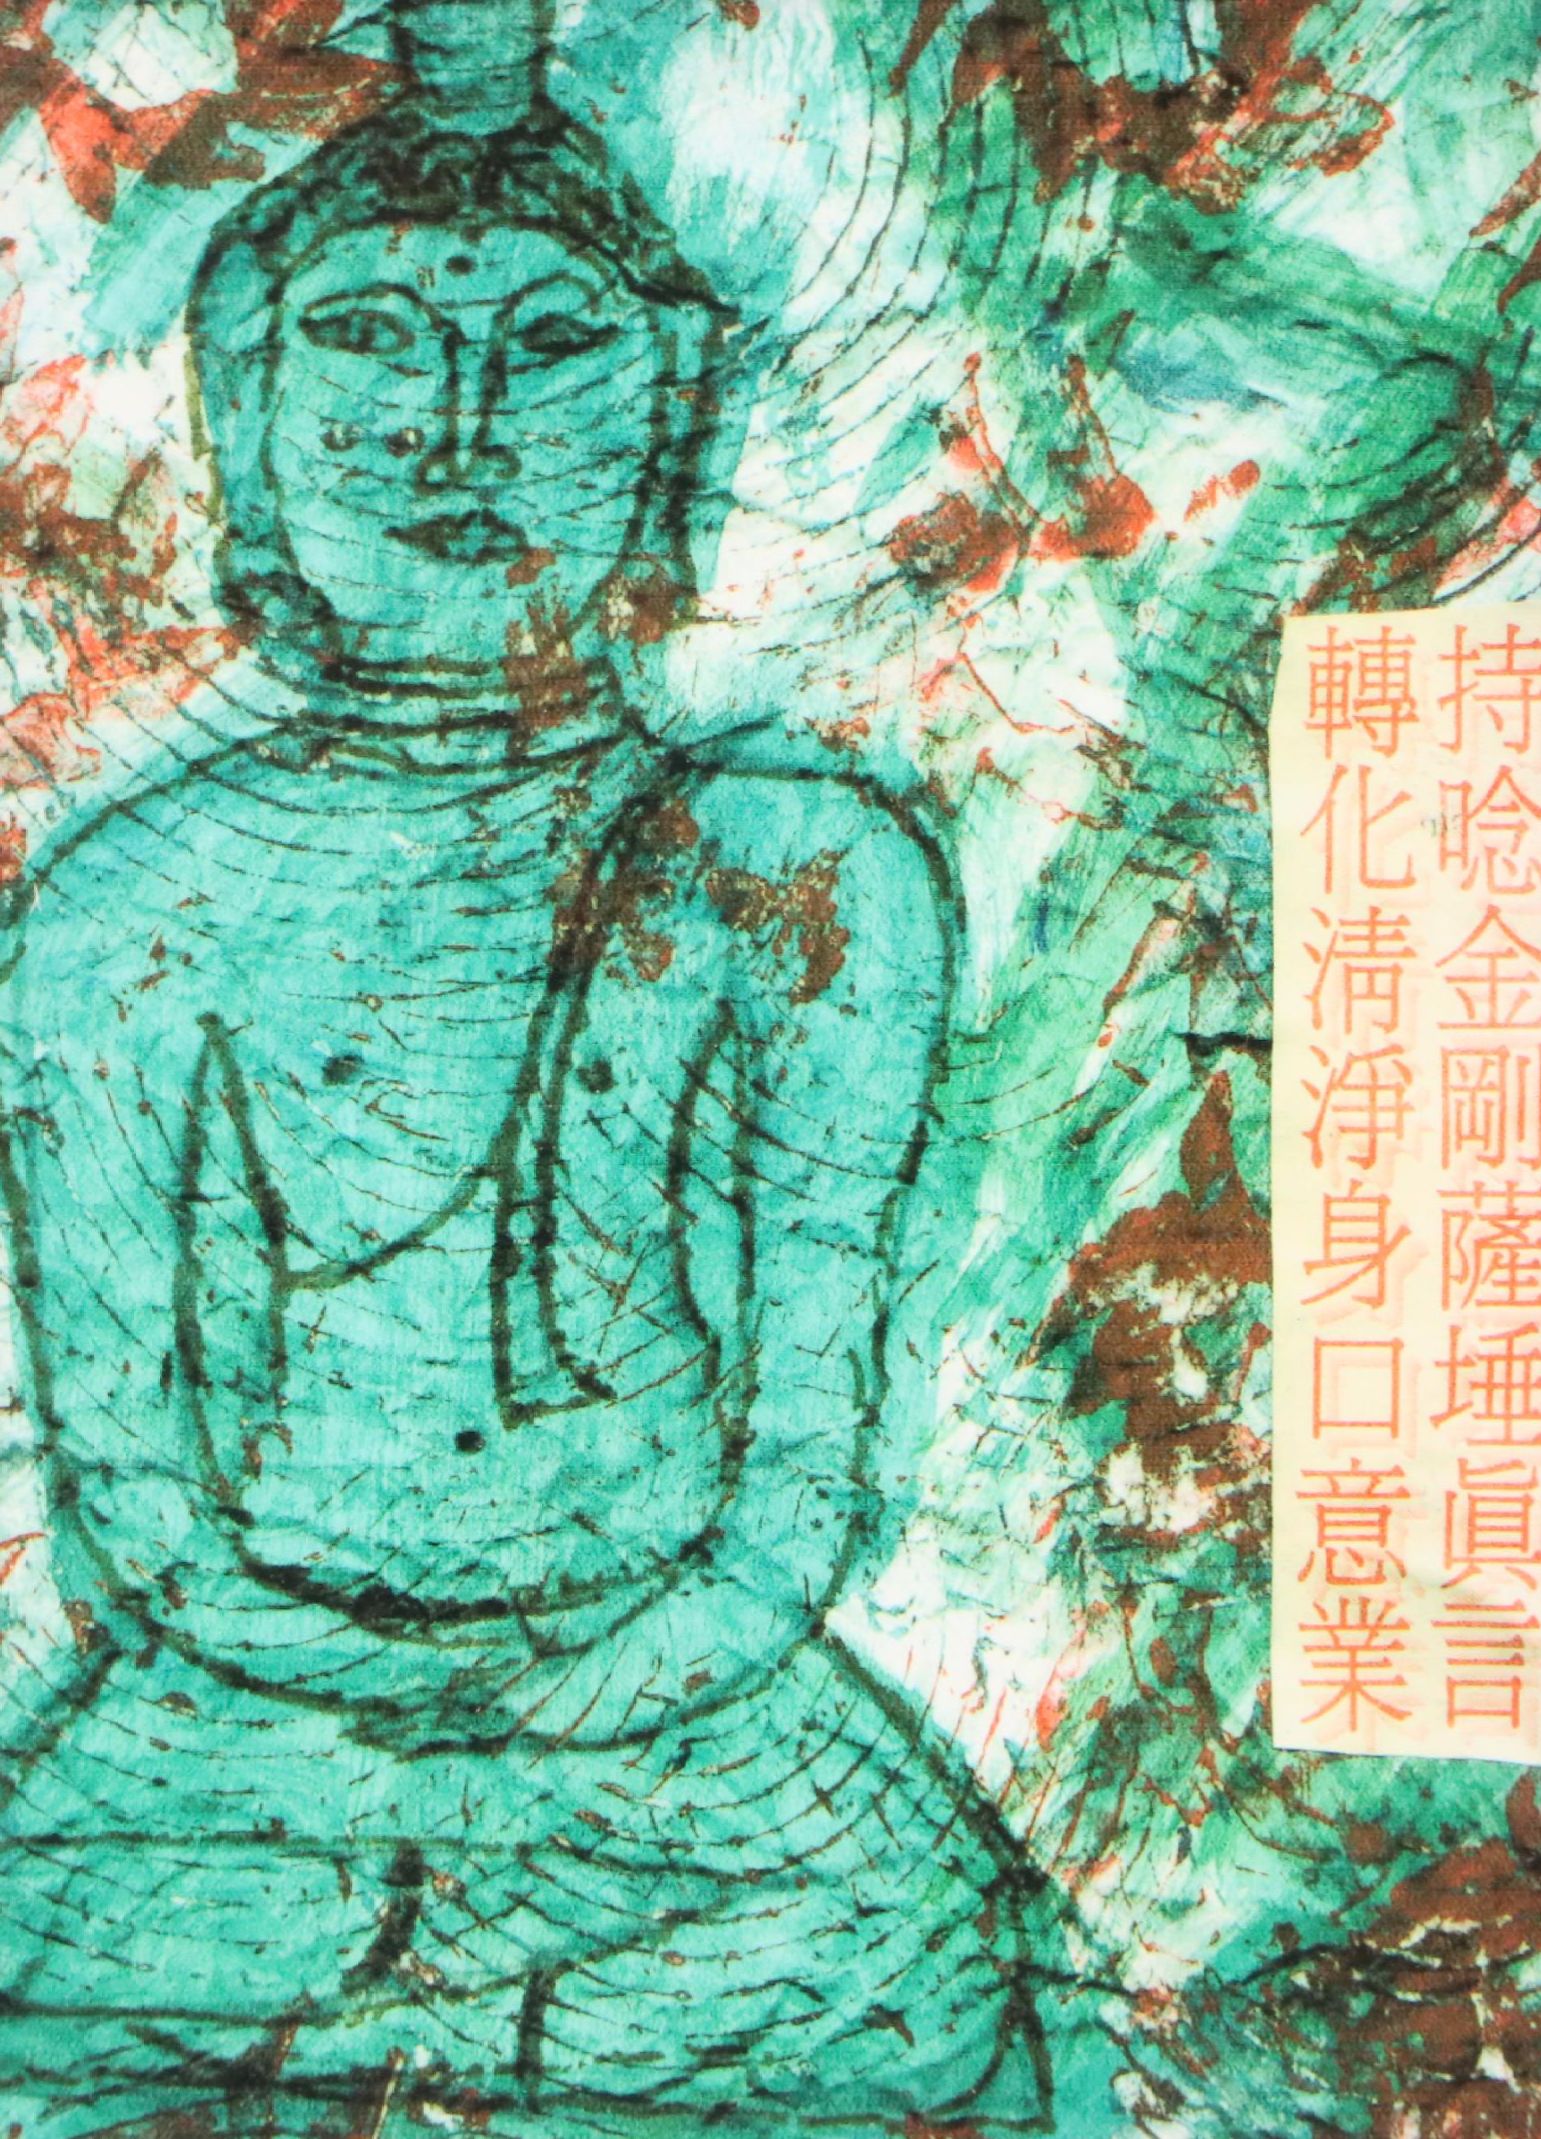 持唸金剛薩埵眞言
轉化淸淨身口意業